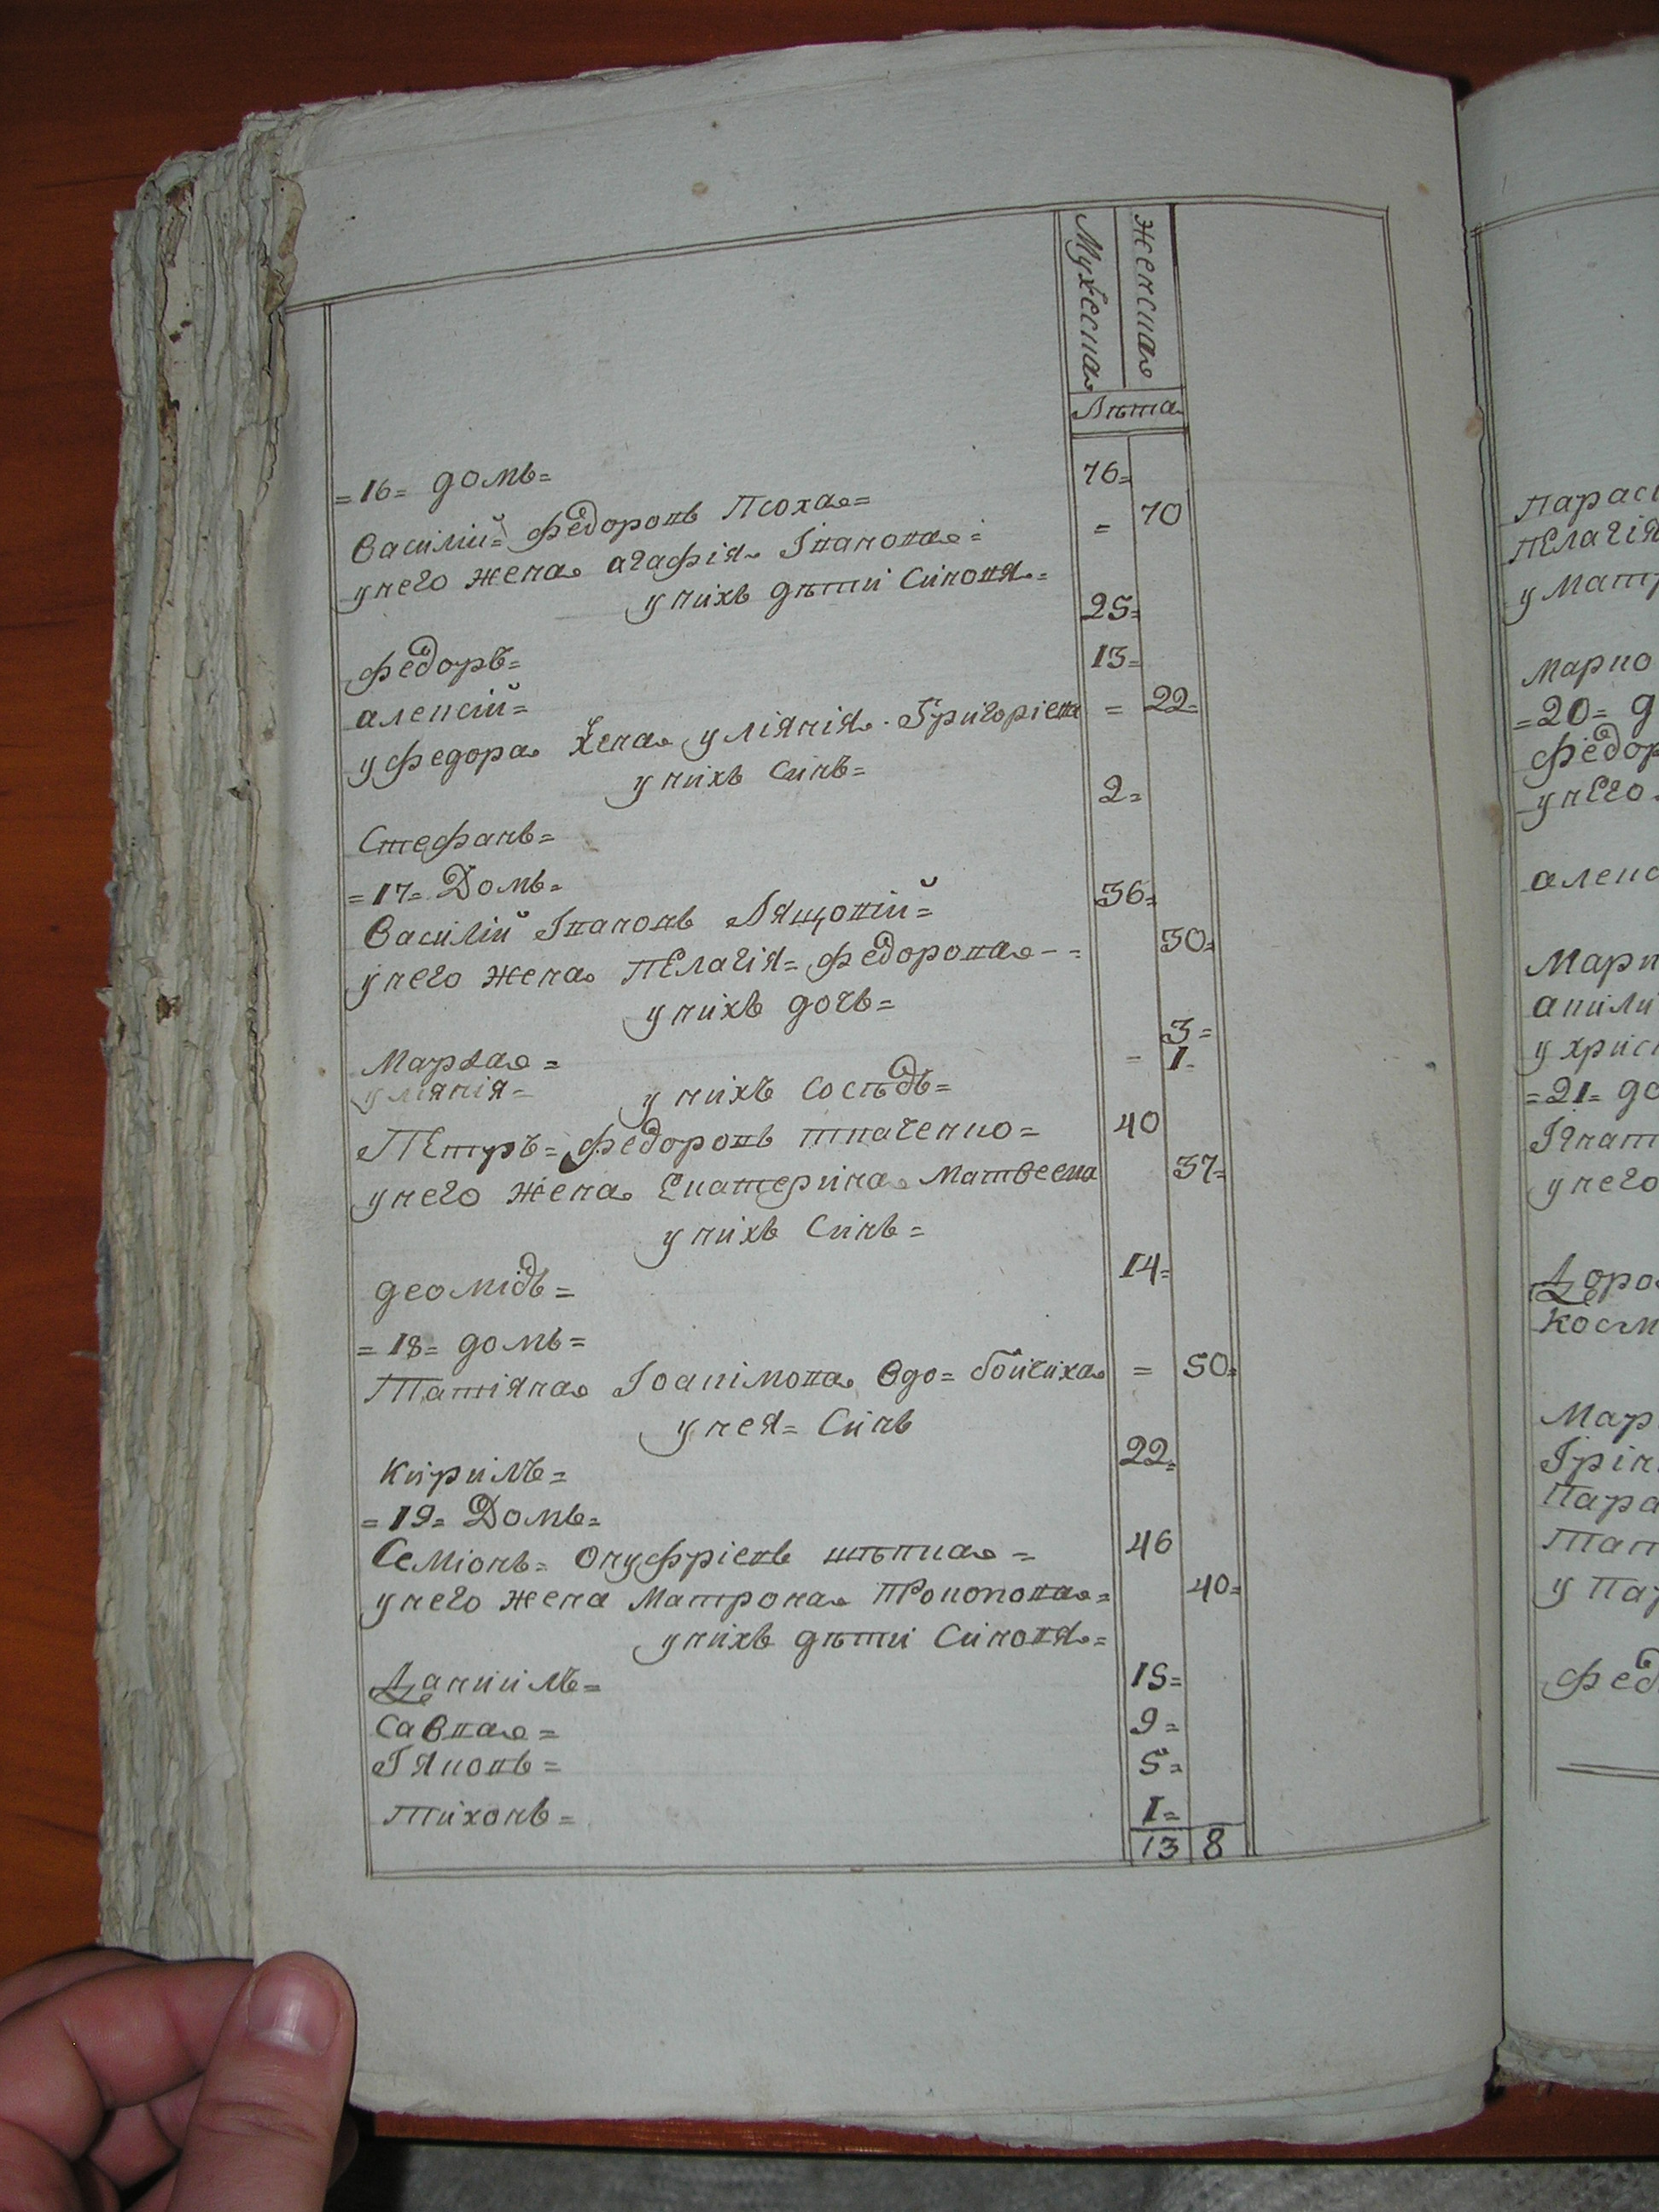 Мужеска
Женска
Лѣта
=16= домъ=
Василій= Федоровъ Псоха= 76=
у него жена агафія Івановна= = 70
у нихъ дѣти Синовя=
федоръ= 25=
алексій= 13=
у федора жена уліянія Григоріевна = 22=
у нихъ Синъ=
Стефанъ= 2=
=17= Домъ=
Василій Івановъ Лящовій= 36=
у него жена Пелагія= федоровна-= 30=
у нихъ дочь=
Марѳа= 3=
уліянія= = 1=
у нихъ сосѣдъ=
Петръ= федоровъ ткаченко= 40
у него жена Екатерина Матвеевна 37=
у нихъ Синъ=
деомідъ= 14=
=18= домъ=
Татіяна Іоакімова вдо= бойчиха = 50=
у нея= Синъ
Кирилъ= 22=
=19= Домъ=
Семіонъ= онуфріевъ 46
у него жена Матрона Прокопова= 40=
у нихъ дѣти Синовя=
Даниилъ= 15=
Савва= 9=
Іяковъ= 5=
тихонъ= 1=
13 8
Парас
Пелагія
у Мат
Марко
=20= д
федор
у него
алекс
Мари
акили
у хрис
=21= до
Ігнат
у него
Доро
Косм
Мар
Грін
Пара
Тат
у Па
фед